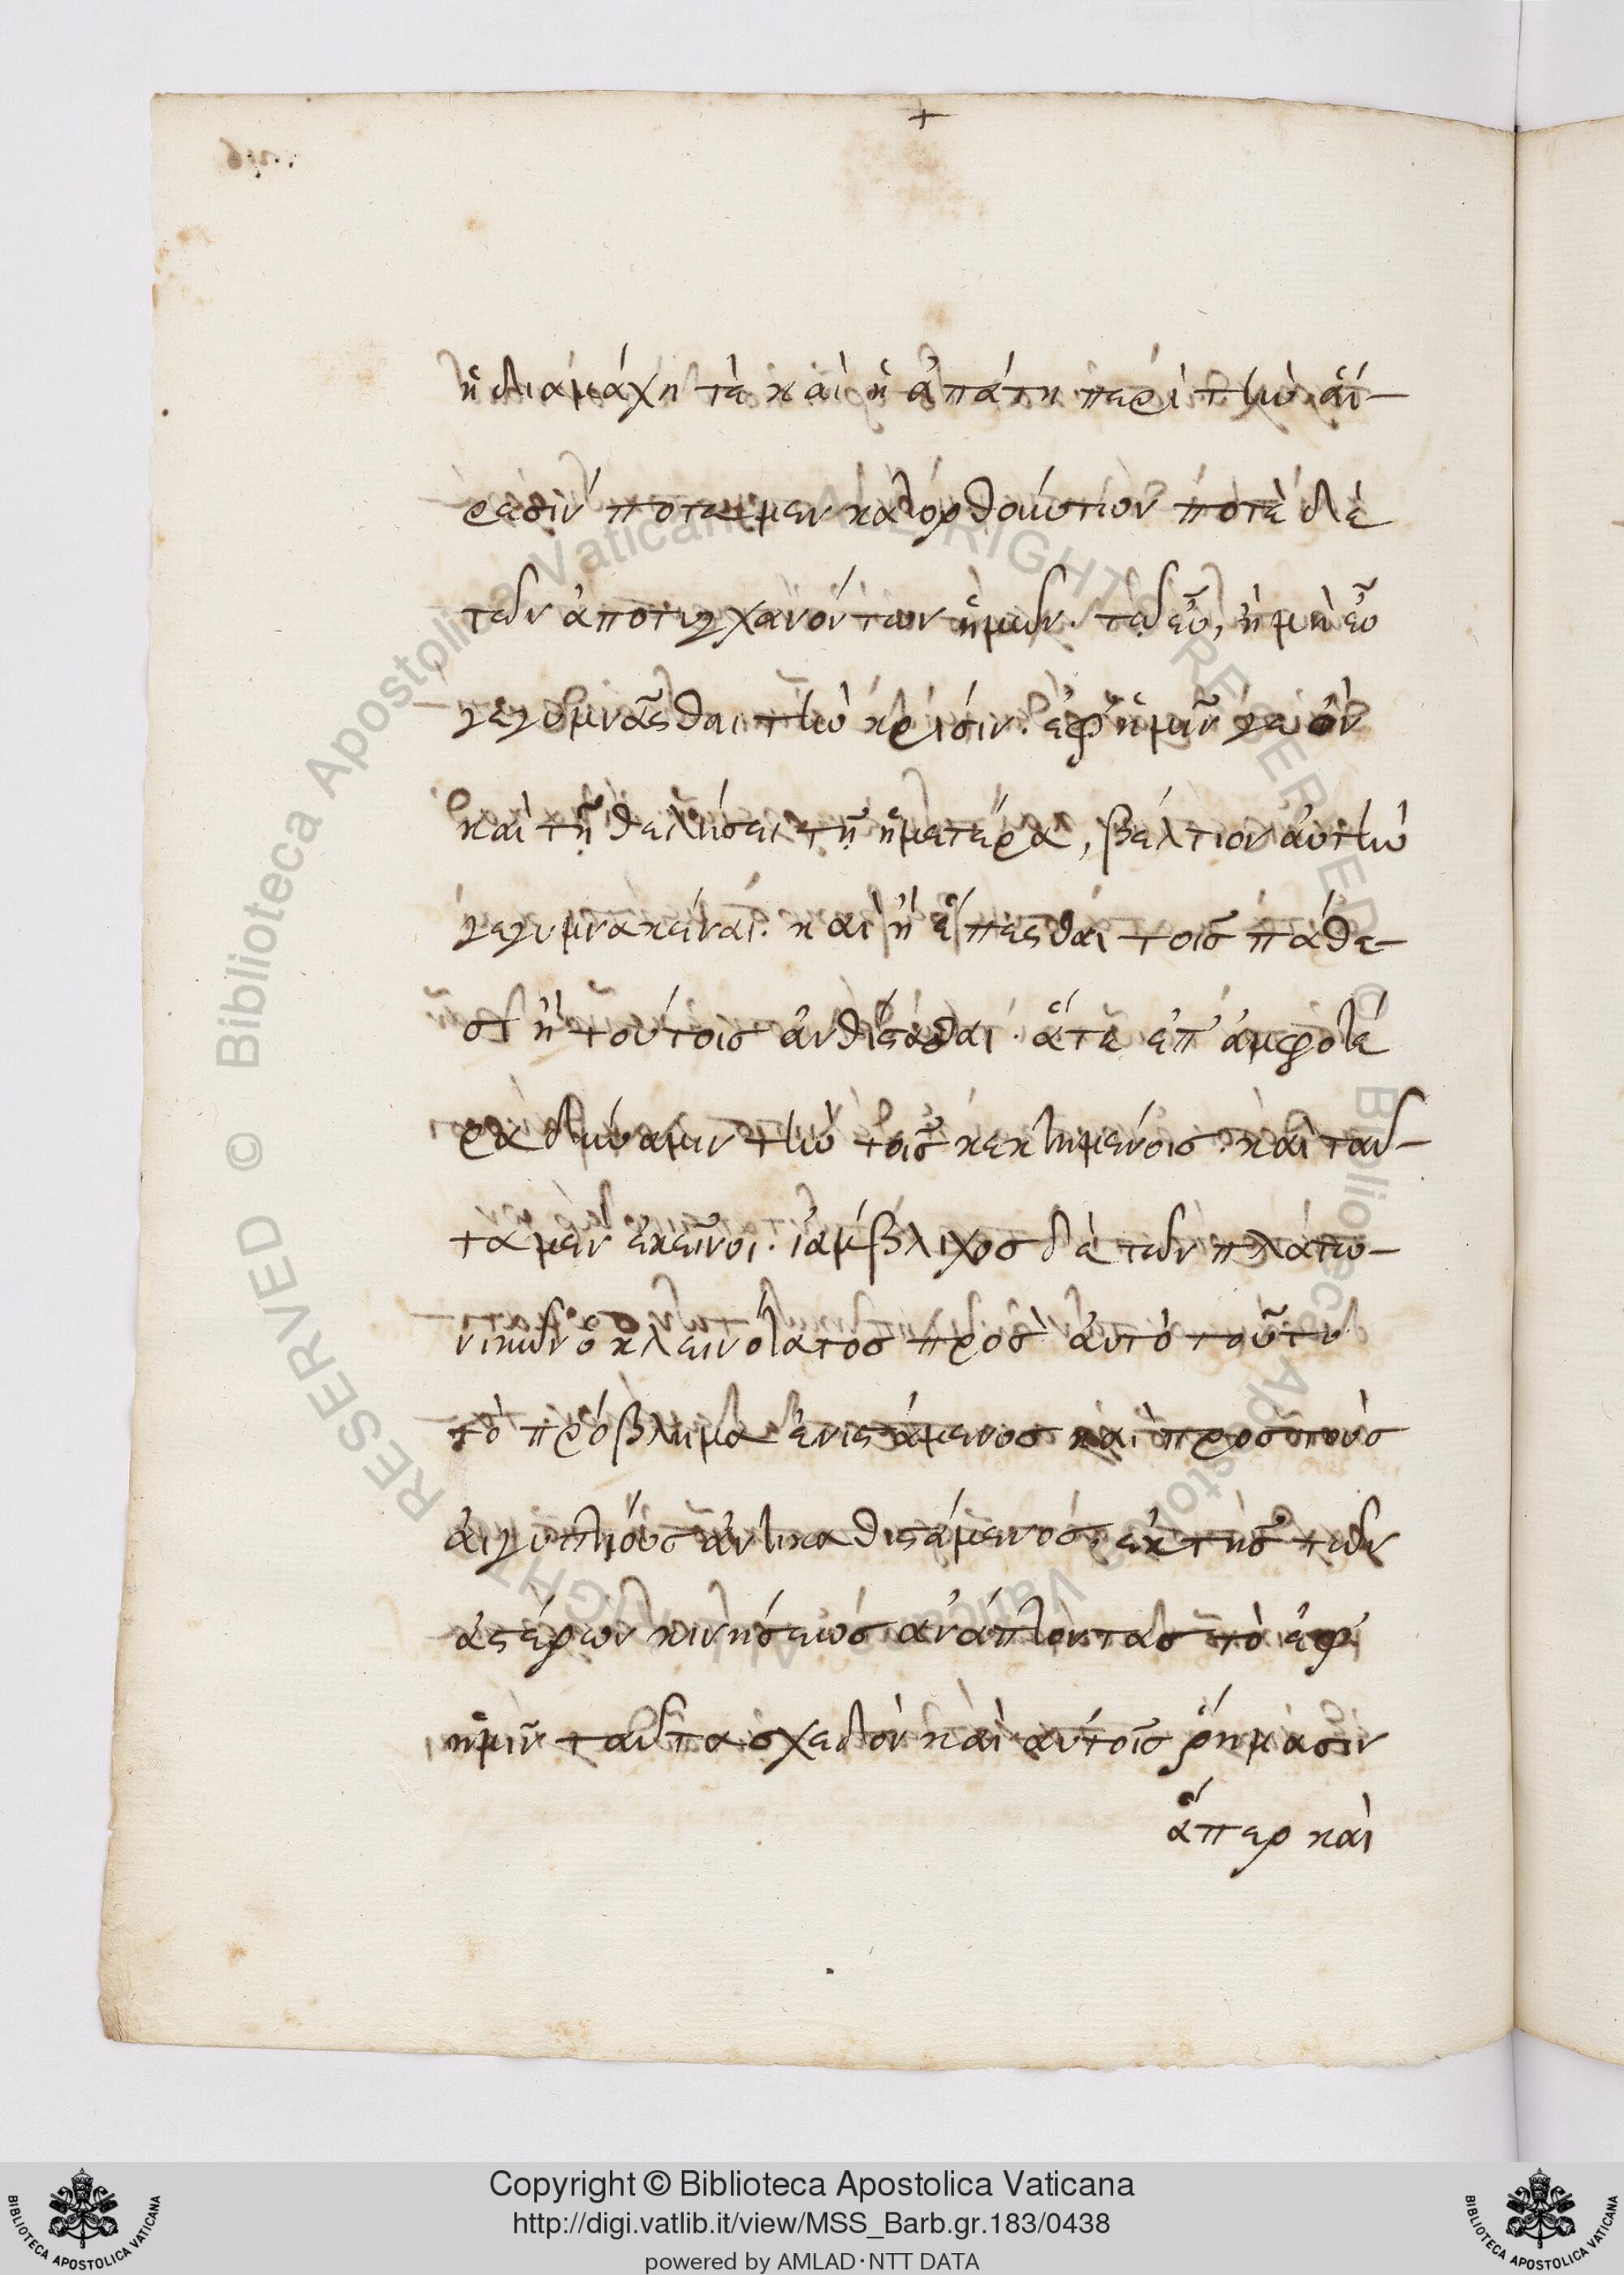 +
ἡ διαμάχη τὲ καὶ ἡ ἀπάτη περὶ τὴν αἵ-
ρεσιν ποτὲ μεν κατορθούντων ποτὲ δὲ
τῶν ἀποτυγχανόντων ἡμῶν. τῷ εὖ, ἢ μὴ εὖ
γεγυμνᾶσθαι τὴν κρίσιν. ἐφ' ἡμῖν γε ὂν
καὶ τῇ θελήσει τῇ ἡμετέρα, βέλτιον αὐτὴν
γεγυμνακέναι. καὶ ἢ ἕπεσθαι τοῖς πάθε-
σι ἢ τούτοις ἀνθίστασθαι. ἅτε ἐπ' ἀμφότε
ρα δύναμιν τὴν τοῖς κεκτημένοις. καὶ ταῦ-
τα μὲν ἐκεῖνοι. ἰάμβλιχος δὲ τῶν πλάτω-
νικῶν ὁ κλεινότατος πρὸς αὐτὸ τοῦτο
τὸ πρόβλημα ἐνιστάμενος καὶ πρὸς τοὺς
αἰγυπτίους ἀντικαθιστάμενος, ἐκ τῆς τῶν
ἀστέρων κινήσεως ἀνάπτοντας τὸ ἐφ'
ἡμῖν ταῦτα σχεδὸν καὶ αὐτοῖς ῥήμασιν
ἅπερ καὶ
RESERVED © Biblioteca Apostolica Vaticana ALL RIGHTS RESERVED © Biblioteca Apostolica Vaticana ALL RIGHTS
Copyright © Biblioteca Apostolica Vaticana
http://digi.vatlib.it/view/MSS_Barb.gr.183/0438
powered by AMLAD·NTT DATA
BIBLIOTECA APOSTOLICA VATICANA
BIBLIOTECA APOSTOLICA VATICANA